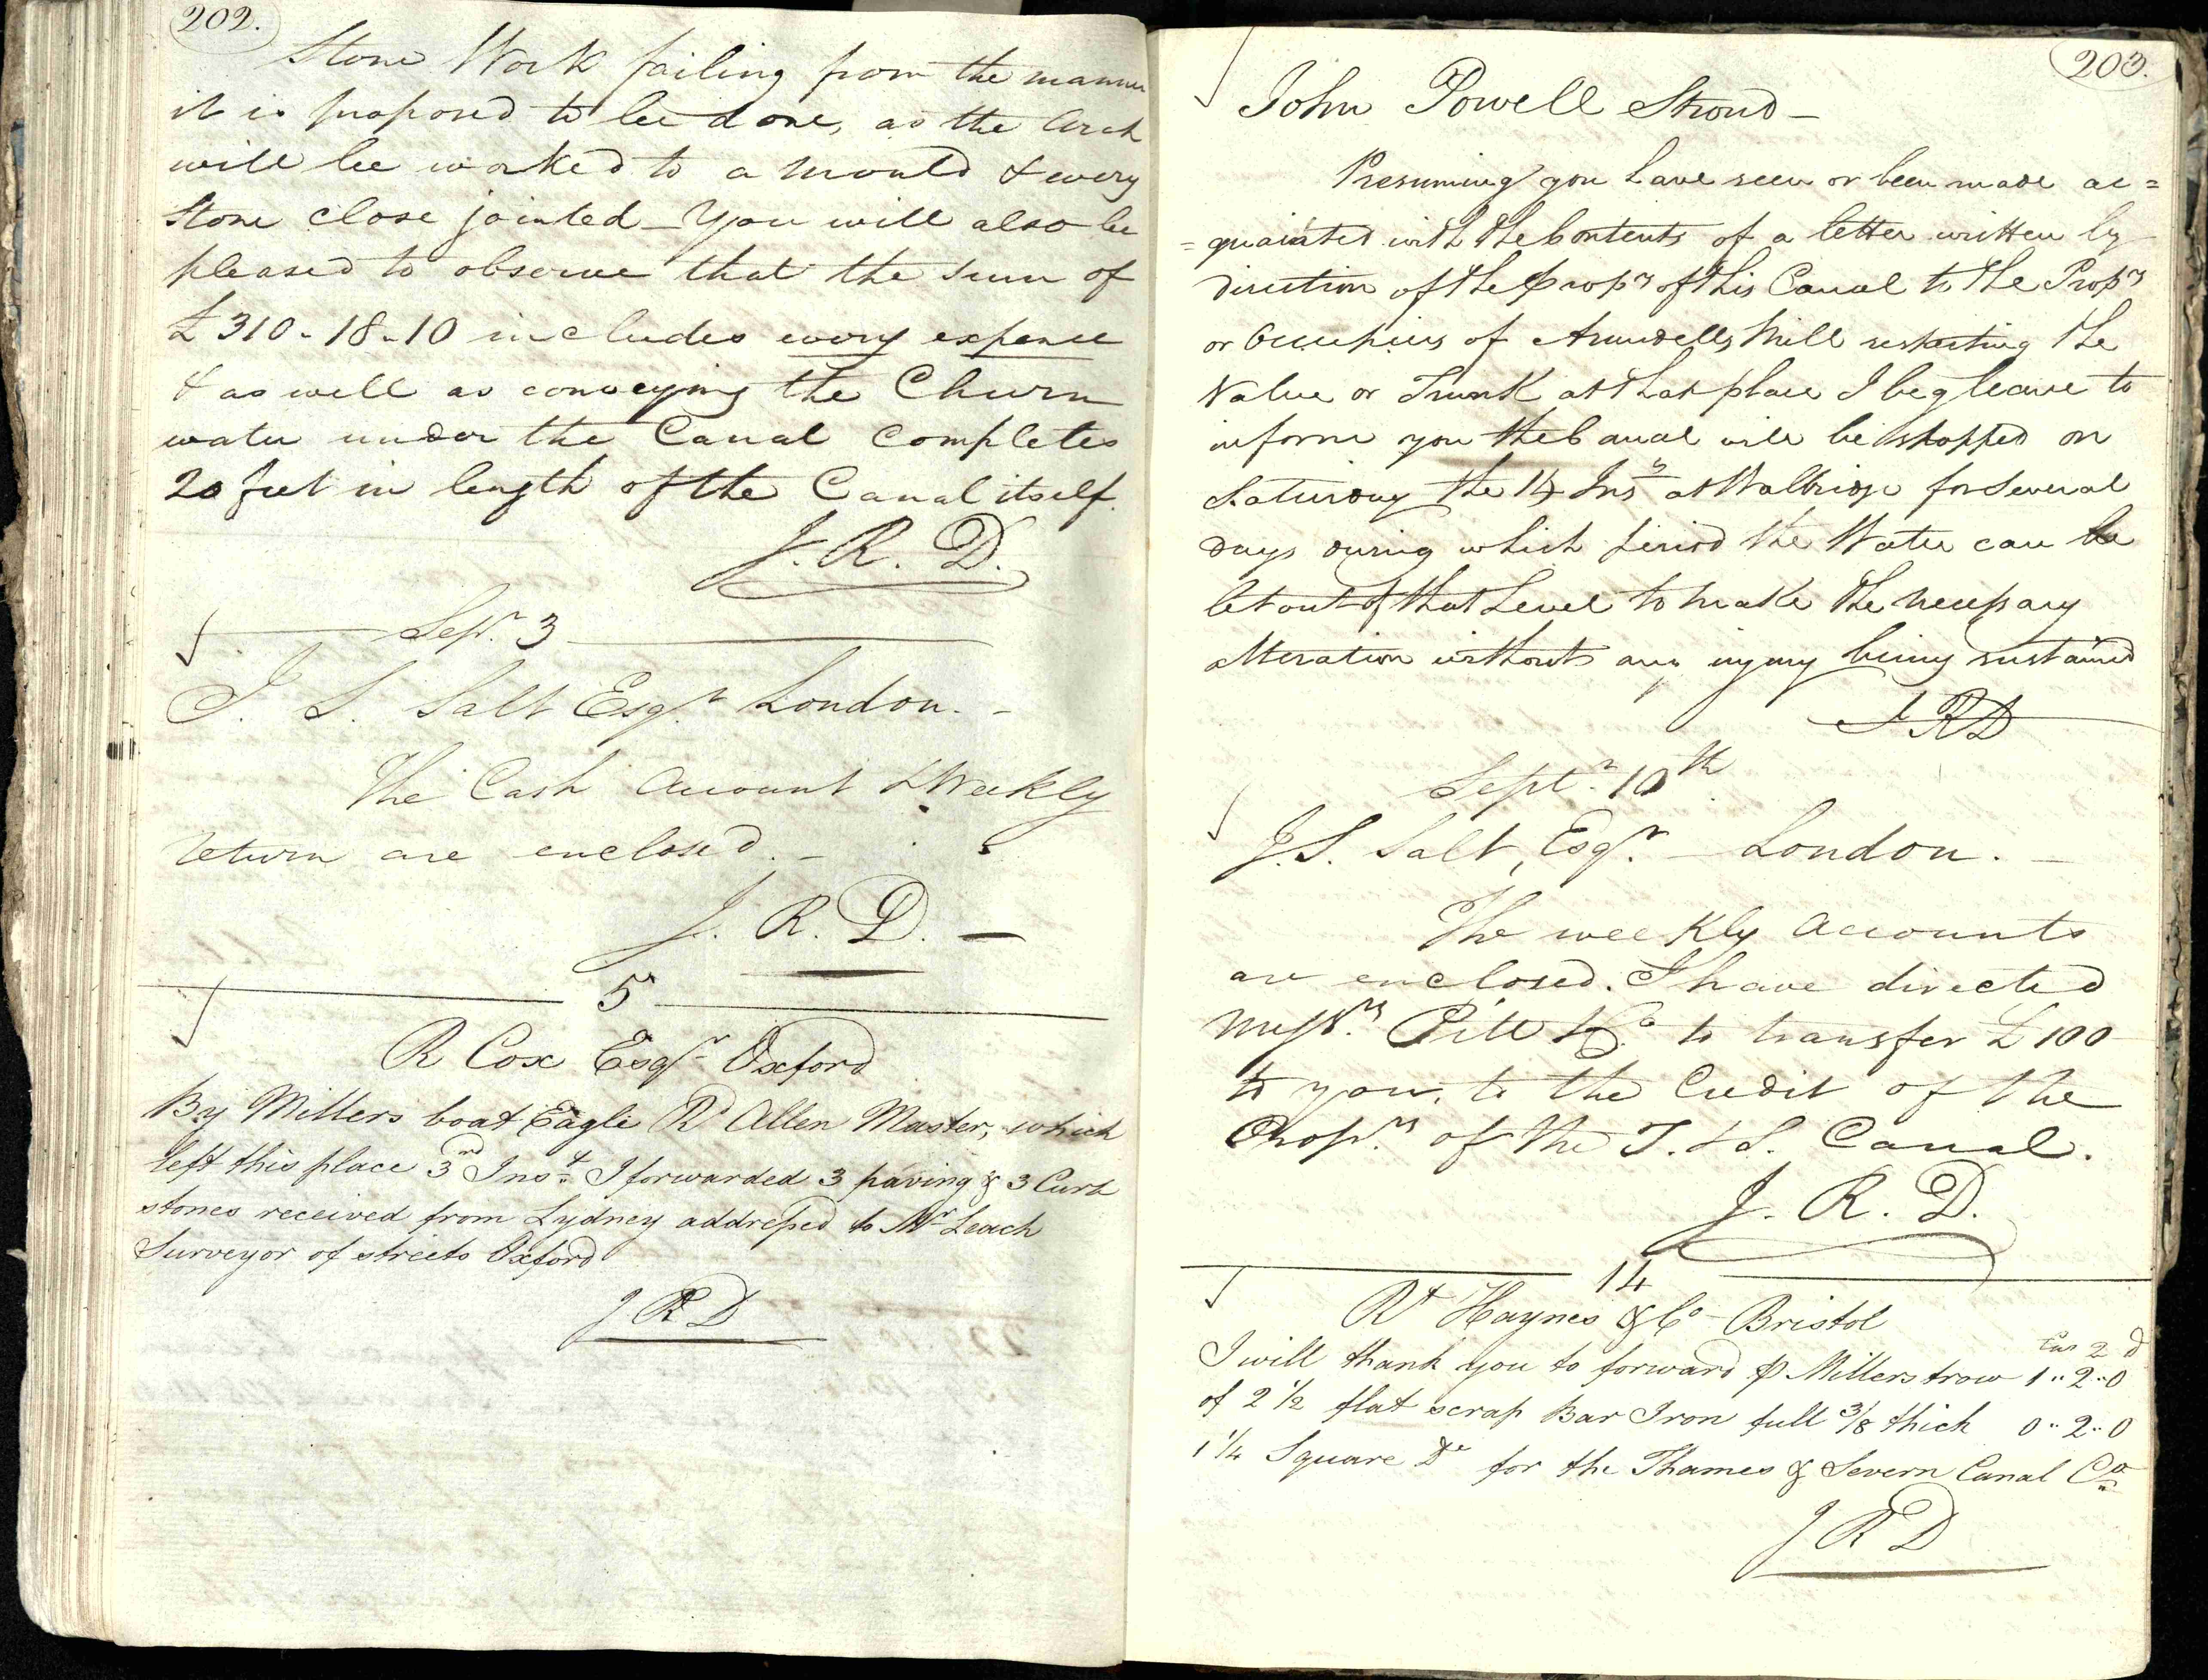 202.
Stone Work failing from the manner
it is proposed to be done, as the Arch
will be worked to a mould & every
Stone close jointed - You will also be
pleased to observe that the sum of
£310-18-10 includes every expence
& as well as conveying the Churn
water under the Canal completes
20 feet in length of the Canal itself.
J. R. D.
Sepr. 3
J. S. Salt Esqr. London. -
The Cash Account & Weekly
return are enclosed. -
J. R. D. -
5
R Cox Esqr Oxford
By Millers boat Eagle Rd Allen Master, which
left this place 3rd Inst I forwarded 3 paving & 3 Curb
stones received from Lydney addressed to Mr Leach
Surveyor of streets Oxford
J R D
203.
John Powell Stroud -
Presuming you have seen or been made ac=
=quainted with the Contents of a letter written by
direction of the Proprs of this Canal to the Proprs
or Occupiers of Arundells Mill respecting the
Valve or Trunk at that place I beg leave to
inform you the Canal will be stopped on
Saturday the 14 Inst at Walbridge for Several
days during which period the Water can be
let out of that Level to make the necessary
alteration without any injury being sustained
J R D
Septr. 10th
J. S. Salt, Esqr. - London. -
The weekly Accounts
are enclosed. I have directed
Messrs. Pitt & Co. to transfer £100
to you, to the Credit of the
Proprs. of the T. & S. Canal.
J. R. D.
14
Rt Haynes & Co - Bristol
I will thank you to forward ⅌ Millers trow 1 " 2 " 0
of 2 1/2 flat scrap Bar Iron full 3/8 thick 0 " 2 " 0
1 1/4 Square Do for the Thames & Severn Canal Co
J R D